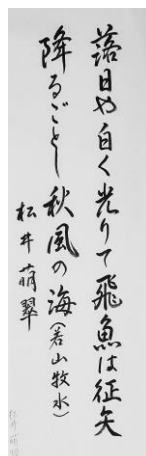 落日や白く光りて飛魚は征矢
降るごとし秋風の海(若山牧水)
松井萌翠